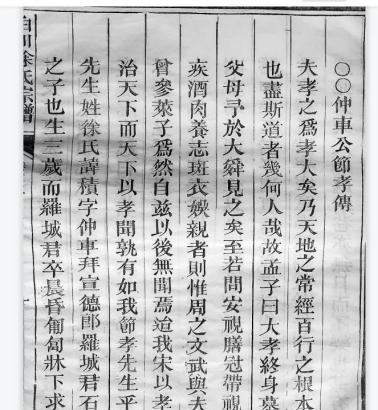 〇〇仲車公節孝傳
夫孝之爲孝大矣乃天地之常經百行之根本
也盡斯道者幾何人哉故孟子曰大孝終身慕
父母予於大舜見之矣至若問安視膳冠帶視
疾酒肉養志斑衣娛親者則惟周之文武與夫
曾參萊子爲然自茲以後無聞焉迨我宋以孝
治天下而天下以孝聞孰有如我節孝先生乎
先生姓徐氏諱積字仲車拜宣德郎羅城君石
之子也生三歲而羅城君卒晨昏匍匐牀下求
徐氏宗譜